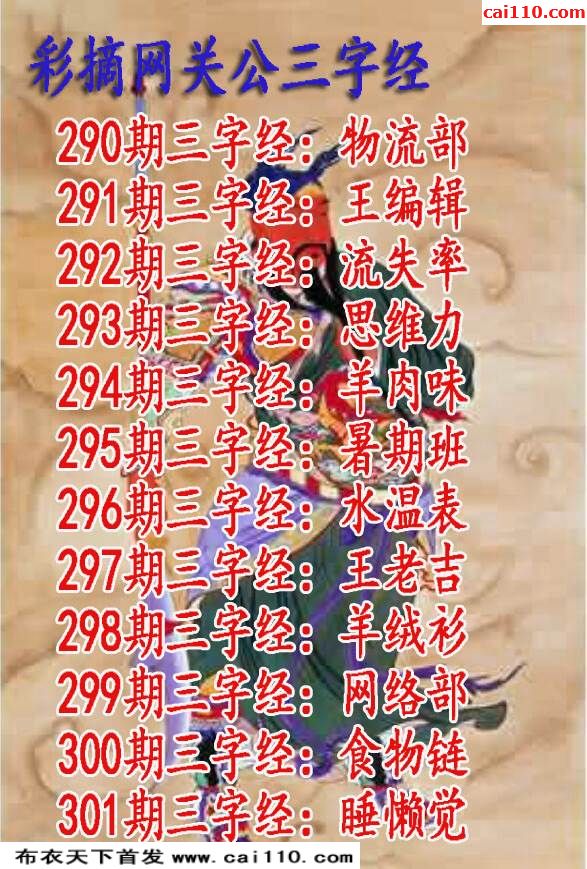 cai110.com
彩摘网关公三字经
290期三字经：物流部
291期三字经：王编辑
292期三字经：流失率
293期三字经：思维力
294期三字经：羊肉味
295期三字经：暑期班
296期三字经：水温表
297期三字经：王老吉
298期三字经：羊绒衫
299期三字经：网络部
300期三字经：食物链
301期三字经：睡懒觉
布衣天下首发 www.cai110.com